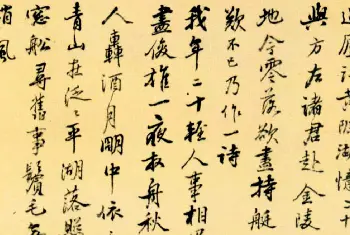 憶二十
與方左諸君赴金陵
地今零落欲盡持艇
歎不已乃作一詩
我年二十輕人事相
盡俊雄一夜放舟秋
人轟酒月明中依
青山在泛泛平湖落照
窓船尋舊事鬢毛
風